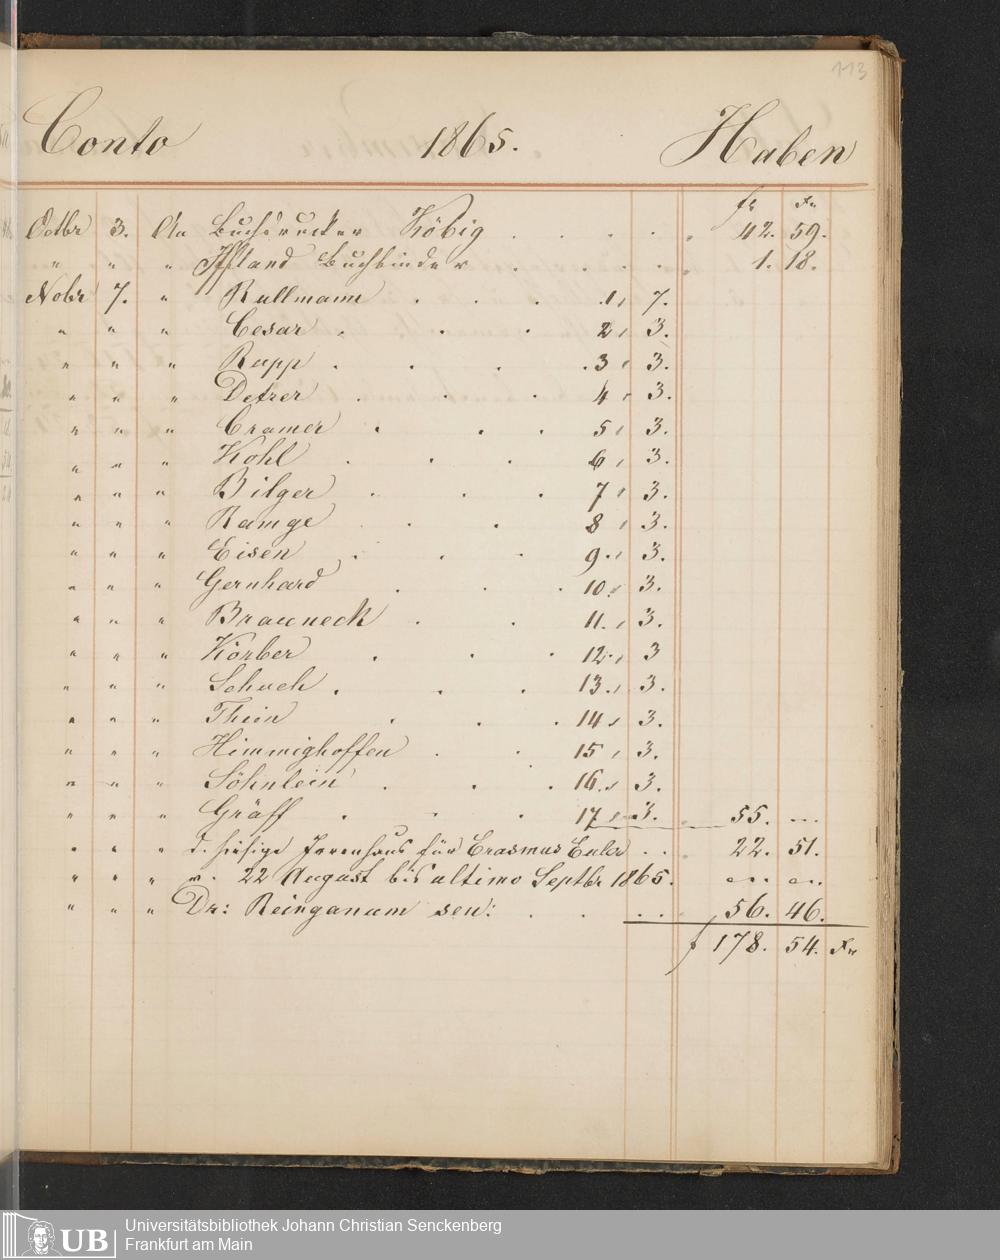 113
Conto 1865. Haben
fl xr
Octbr 3. An Buchdrucker Köbig . . . . . 42. 59.
" " " Iffland Buchbinder . . . . . 1. 18.
Nobr 7. " Rullmann . . . 1, 7.
" " " Cesar . . . 2, 3.
" " " Rapp . . . . 3, 3.
" " " Detzer . . . 4, 3.
" " " Cramer . . . 5, 3.
" " " Kohl . . . 6, 3.
" " " Bilger . . . 7, 3.
" " " Ramge . . 8, 3.
" " " Eisen . . . 9., 3.
" " " Gernhard . . . 10., 3.
" " " Brauneck . . 11., 3.
" " " Körber . . . 12., 3
" " " Schuch . . . 13., 3.
" " " Thein . . . 14, 3.
" " " Himmighoffen . . 15, 3.
" " " Söhnlein . . . 16., 3.
" " " Gräff . . . 17, 3. 55. ...
" " " d. hiesige Irrenhaus für Erasmus Euler . . 22. 51.
" " " v. 22 August bis ultimo Septbr 1865.
" " " Dr: Reinganum sen: . . . . . 56. 46.
f 178. 54. xr
UB
Universitätsbibliothek Johann Christian Senckenberg
Frankfurt am Main